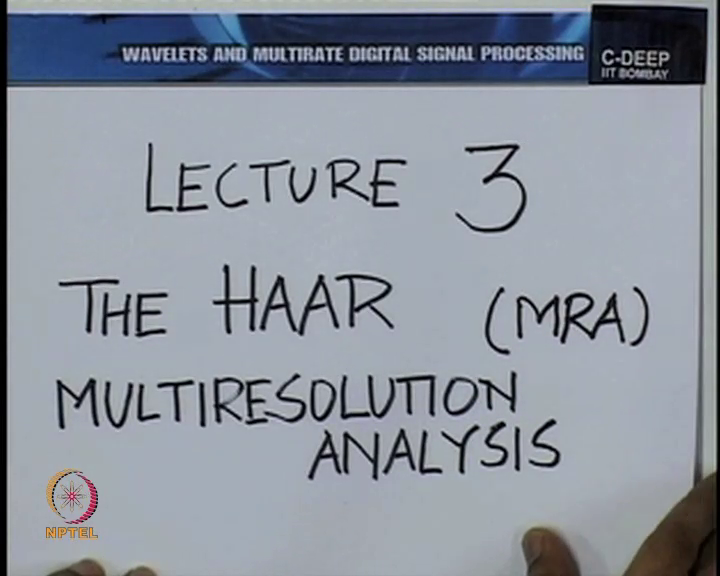 WAVELETS AND MULTIRATE DIGITAL SIGNAL PROCESSING
C-DEEP
IIT BOMBAY
LECTURE 3
THE HAAR (MRA)
MULTIRESOLUTION
ANALYSIS
NPTEL